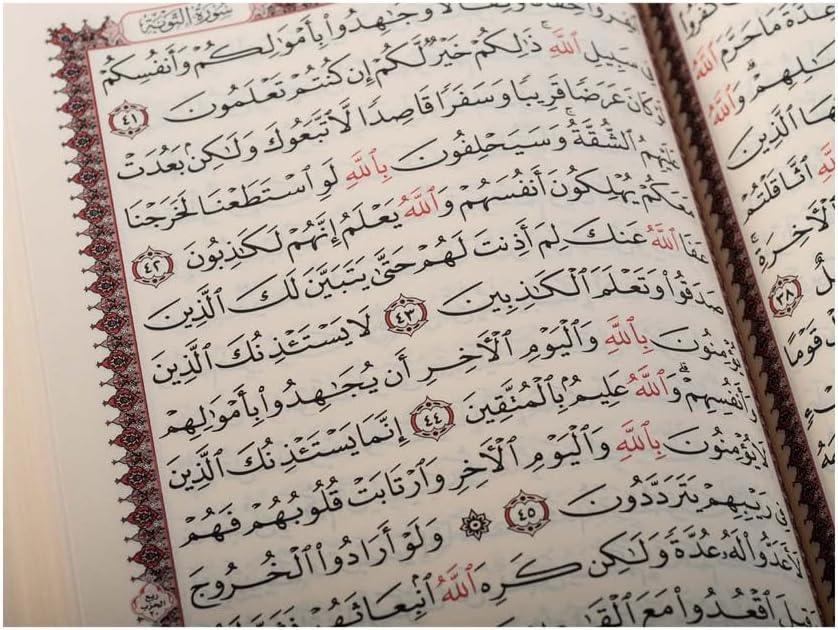 سُورَةُ التَّوْبَةِ
ٱنفِرُوا۟ خِفَافًا وَثِقَالًا وَجَٰهِدُوا۟ بِأَمْوَٰلِكُمْ وَأَنفُسِكُمْ
فِى سَبِيلِ ٱللَّهِ ۚ ذَٰلِكُمْ خَيْرٌ لَّكُمْ إِن كُنتُمْ تَعْلَمُونَ ٤١
لَوْ كَانَ عَرَضًا قَرِيبًا وَسَفَرًا قَاصِدًا لَّٱتَّبَعُوكَ وَلَٰكِنۢ بَعُدَتْ
عَلَيْهِمُ ٱلشُّقَّةُ ۚ وَسَيَحْلِفُونَ بِٱللَّهِ لَوِ ٱسْتَطَعْنَا لَخَرَجْنَا
مَعَكُمْ يُهْلِكُونَ أَنفُسَهُمْ وَٱللَّهُ يَعْلَمُ إِنَّهُمْ لَكَٰذِبُونَ ٤٢
عَفَا ٱللَّهُ عَنكَ لِمَ أَذِنتَ لَهُمْ حَتَّىٰ يَتَبَيَّنَ لَكَ ٱلَّذِينَ
صَدَقُوا۟ وَتَعْلَمَ ٱلْكَٰذِبِينَ ٤٣ لَا يَسْتَـْٔذِنُكَ ٱلَّذِينَ
يُؤْمِنُونَ بِٱللَّهِ وَٱلْيَوْمِ ٱلْـَٔاخِرِ أَن يُجَٰهِدُوا۟ بِأَمْوَٰلِهِمْ
وَأَنفُسِهِمْ ۗ وَٱللَّهُ عَلِيمٌۢ بِٱلْمُتَّقِينَ ٤٤ إِنَّمَا يَسْتَـْٔذِنُكَ ٱلَّذِينَ
لَا يُؤْمِنُونَ بِٱللَّهِ وَٱلْيَوْمِ ٱلْـَٔاخِرِ وَٱرْتَابَتْ قُلُوبُهُمْ فَهُمْ
فِى رَيْبِهِمْ يَتَرَدَّدُونَ ٤٥ ۞ وَلَوْ أَرَادُوا۟ ٱلْخُرُوجَ
لَأَعَدُّوا۟ لَهُۥ عُدَّةً وَلَٰكِن كَرِهَ ٱللَّهُ ٱنۢبِعَاثَهُمْ فَثَبَّطَهُمْ
وَقِيلَ ٱقْعُدُوا۟ مَعَ ٱلْقَٰعِدِينَ
ربع الحزب
كَفَرُوا۟
عِدَّةَ مَا حَرَّمَ
ٱللَّهُ
أَعْمَٰلِهِمْ ۗ وَٱللَّهُ
ٱلَّذِينَ
ٱللَّهِ ٱثَّاقَلْتُمْ
ٱلْـَٔاخِرَةِ ۚ
٣٨
قَوْمًا